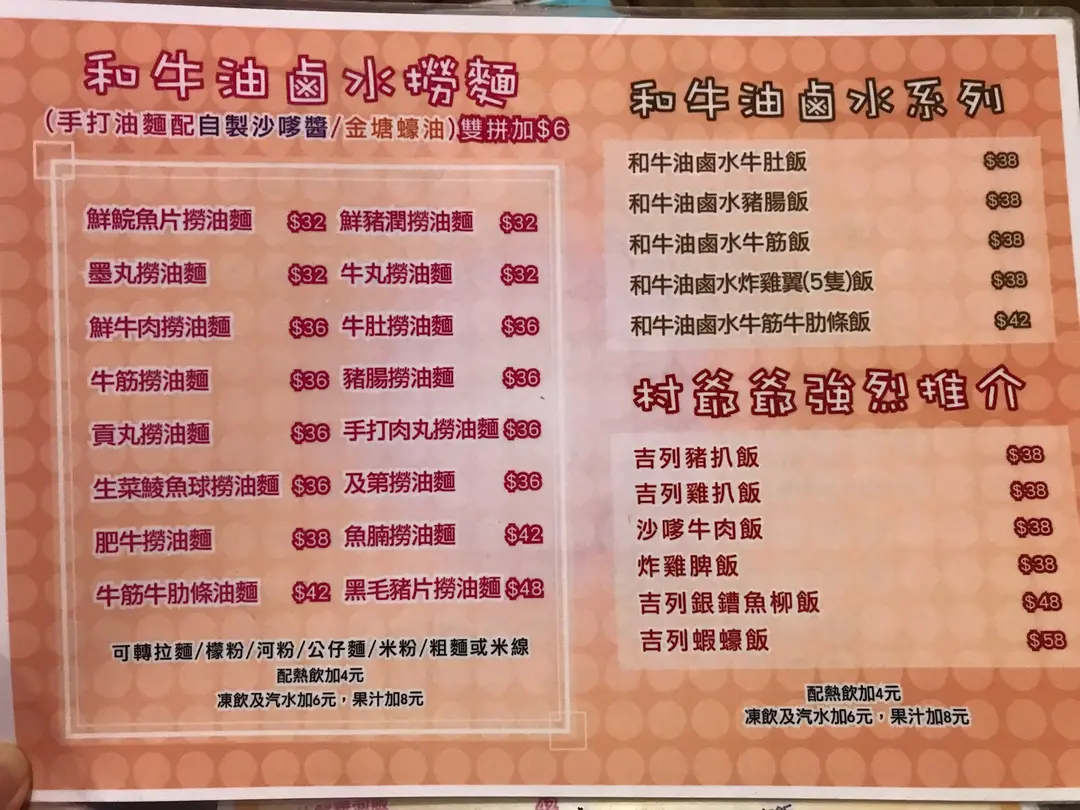 和牛油鹵水撈麵
(手打油麵配自製沙嗲醬/金塘蠔油)雙拼加$6
鮮鯇魚片撈油麵 $32 鮮豬潤撈油麵 $32
墨丸撈油麵 $32 牛丸撈油麵 $32
鮮牛肉撈油麵 $36 牛肚撈油麵 $36
牛筋撈油麵 $36 豬腸撈油麵 $36
貢丸撈油麵 $36 手打肉丸撈油麵 $36
生菜鯪魚球撈油麵 $36 及第撈油麵 $36
肥牛撈油麵 $38 魚腩撈油麵 $42
牛筋牛肋條油麵 $42 黑毛豬片撈油麵 $48
可轉拉麵/檬粉/河粉/公仔麵/米粉/粗麵或米線
配熱飲加4元
凍飲及汽水加6元，果汁加8元
和牛油鹵水系列
和牛油鹵水牛肚飯 $38
和牛油鹵水豬腸飯 $38
和牛油鹵水牛筋飯 $38
和牛油鹵水炸雞翼(5隻)飯 $38
和牛油鹵水牛筋牛肋條飯 $42
村爺爺強烈推介
吉列豬扒飯 $38
吉列雞扒飯 $38
沙嗲牛肉飯 $38
炸雞脾飯 $38
吉列銀鱈魚柳飯 $48
吉列蝦蠔飯 $58
配熱飲加4元
凍飲及汽水加6元，果汁加8元